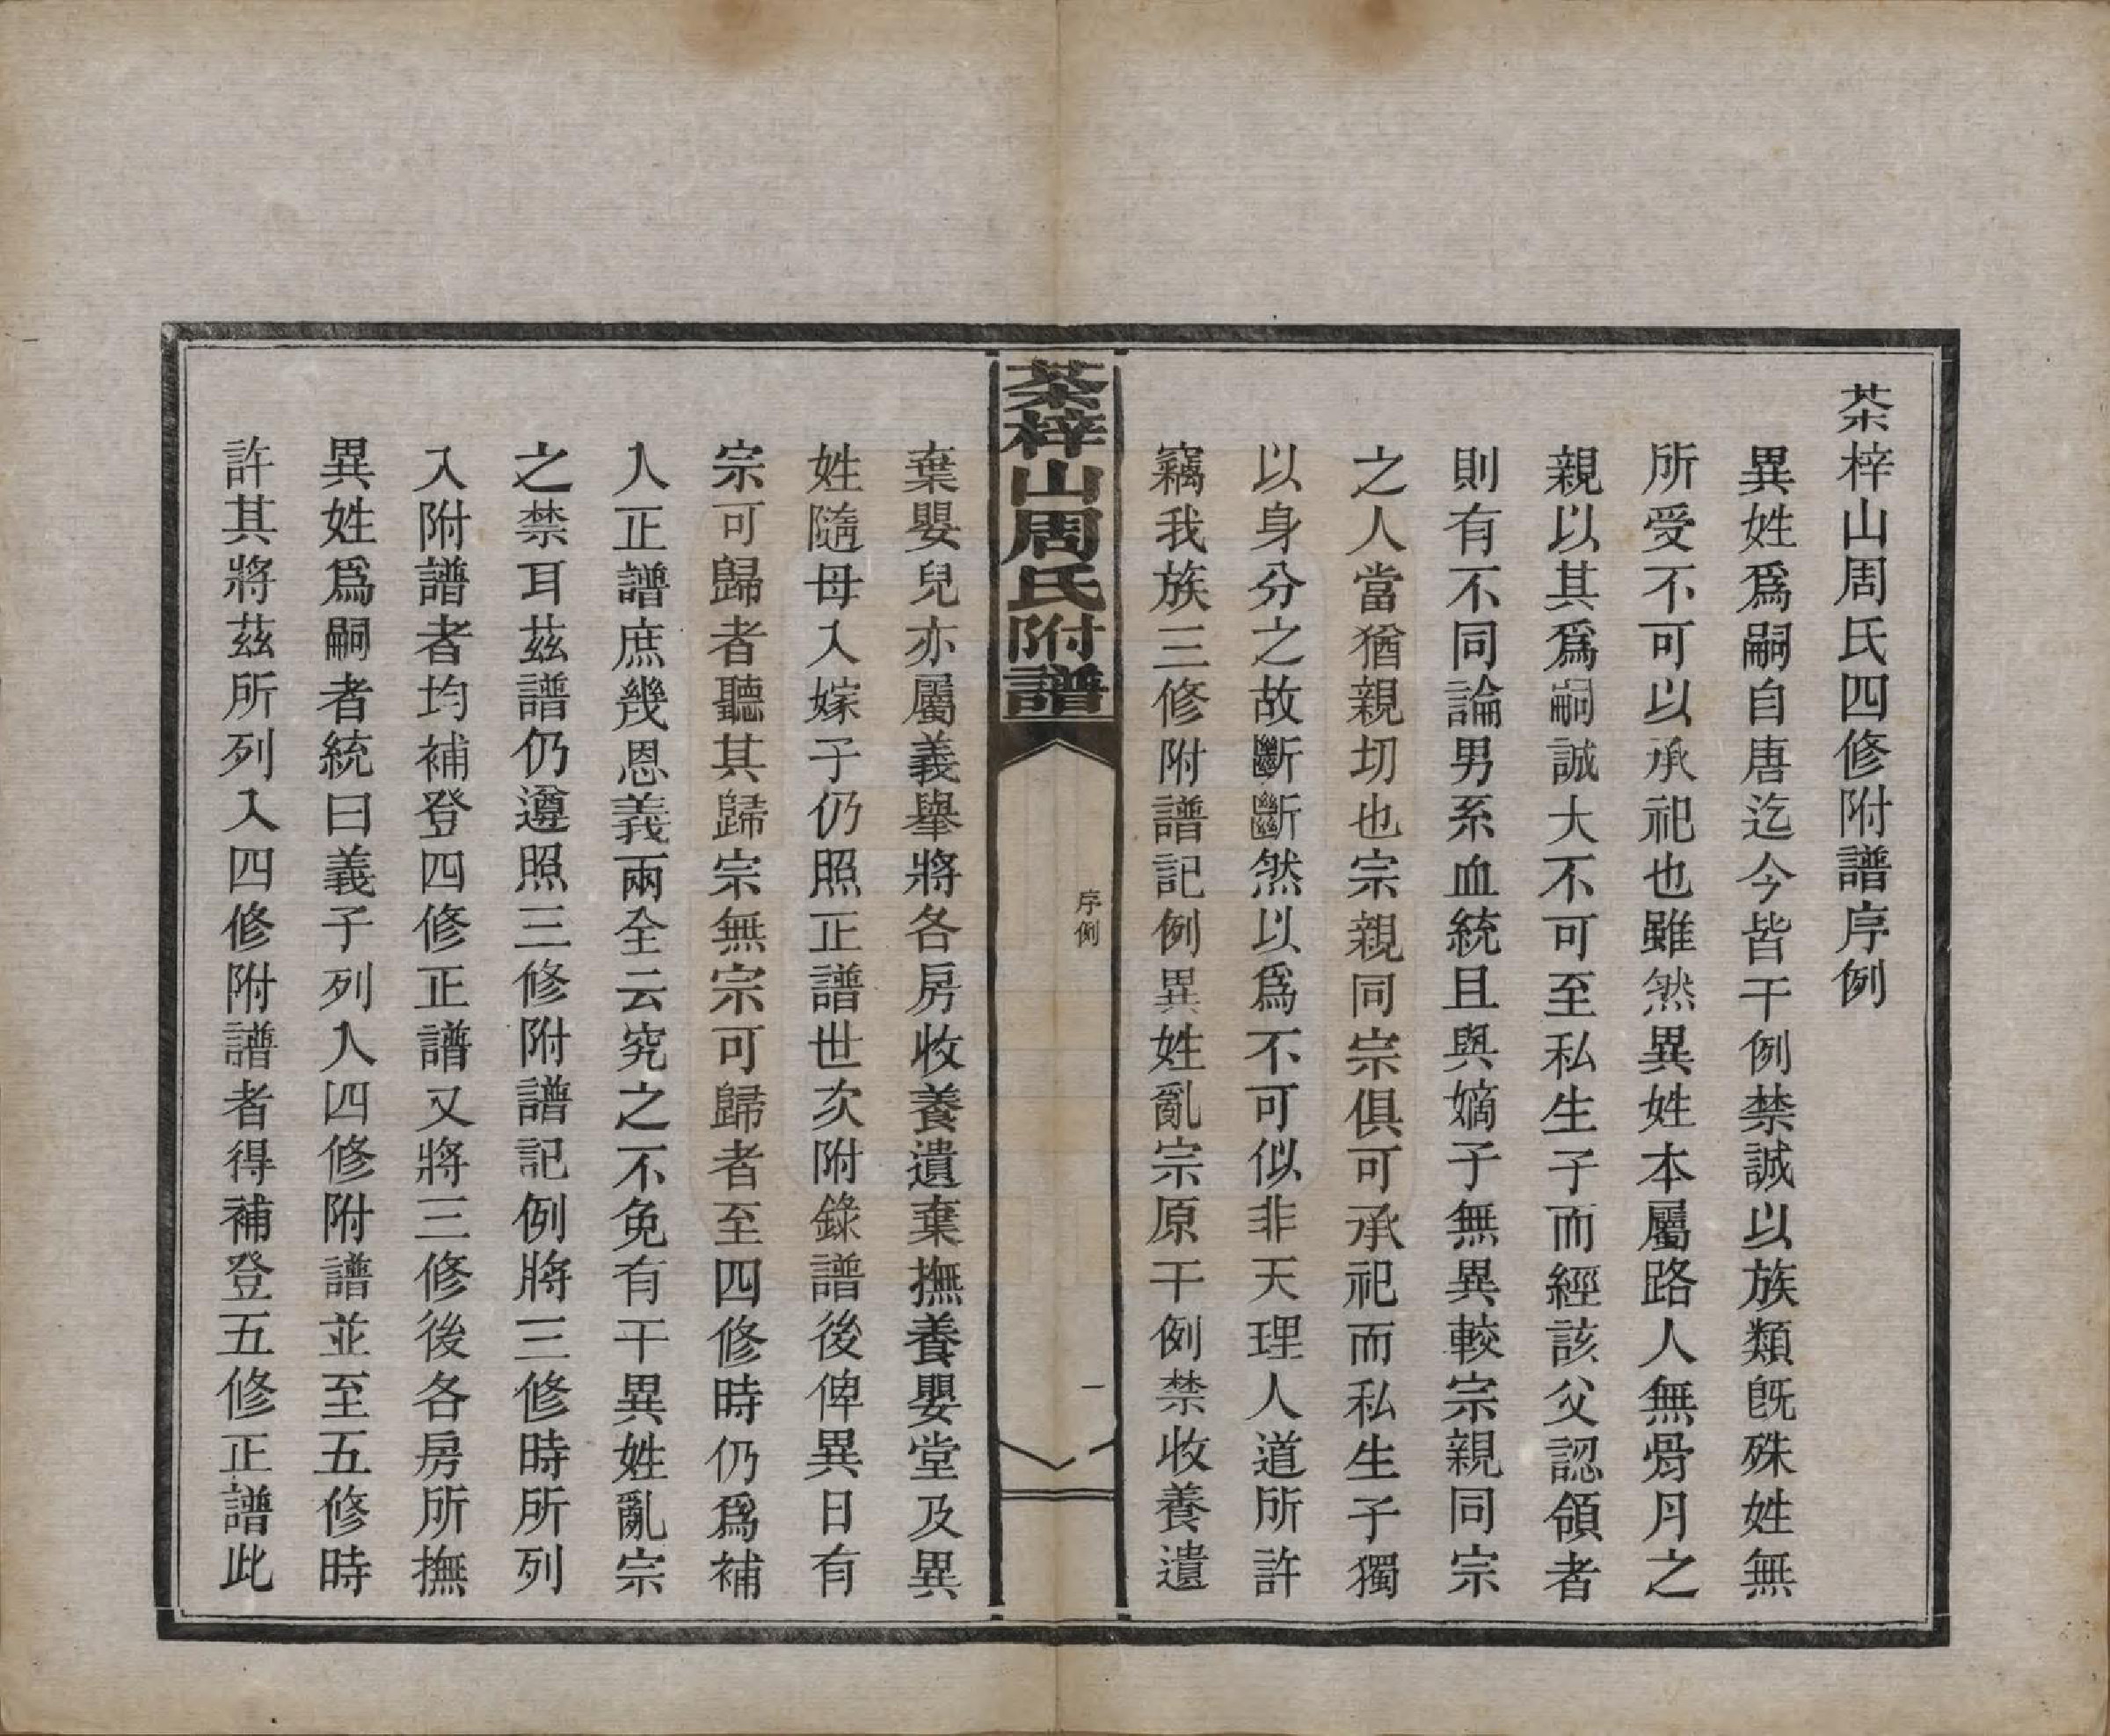 茶梓山周氏四修附譜序例
異姓爲嗣自唐迄今皆干例禁誠以族類旣殊姓無
所受不可以承祀也雖然異姓本屬路人無骨月之
親以其爲嗣誠大不可至私生子而經該父認領者
則有不同論男系血統且與嫡子無異較宗親同宗
之人當猶親切也宗親同宗俱可承祀而私生子獨
以身分之故斷斷然以爲不可似非天理人道所許
竊我族三修附譜記例異姓亂宗原干例禁收養遺
茶梓山周氏附譜
序例
一
棄嬰兒亦屬義舉將各房收養遺棄撫養嬰堂及異
姓隨母入嫁子仍照正譜世次附錄譜後俾異日有
宗可歸者聽其歸宗無宗可歸者至四修時仍爲補
人正譜庶幾恩義兩全云究之不免有干異姓亂宗
之禁耳茲譜仍遵照三修附譜記例將三修時所列
入附譜者均補登四修正譜又將三修後各房所撫
異姓爲嗣者統曰義子列人四修附譜並至五修時
許其將茲所列入四修附譜者得補登五修正譜此